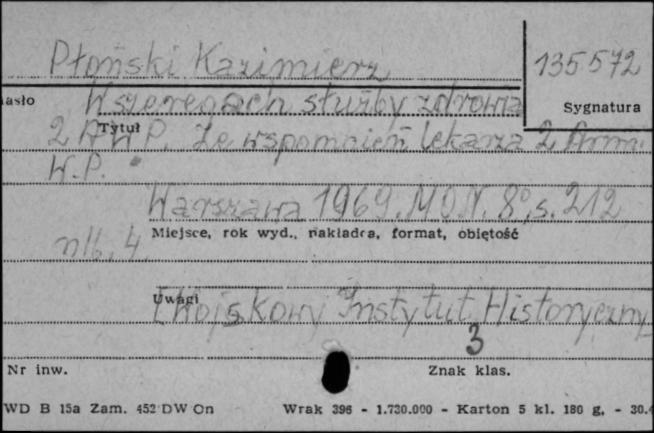 Płoński Kazimierz
135572
asło
W szeregach służby zdrowia
Sygnatura
Tytuł
2 AWP. Ze wspomnień lekarza 2 Armi
W.P.
Warszawa 1969. MON. 8°, s. 212
Miejsce, rok wyd., nakładca, format, objętość
nlb. 4.
Uwagi
[Wojskowy Instytut Historyczny
3
Nr inw.
Znak klas.
WD B 15a Zam. 452 DW On
Wrak 396 - 1.730.000 - Karton 5 kl. 180 g. - 30.4